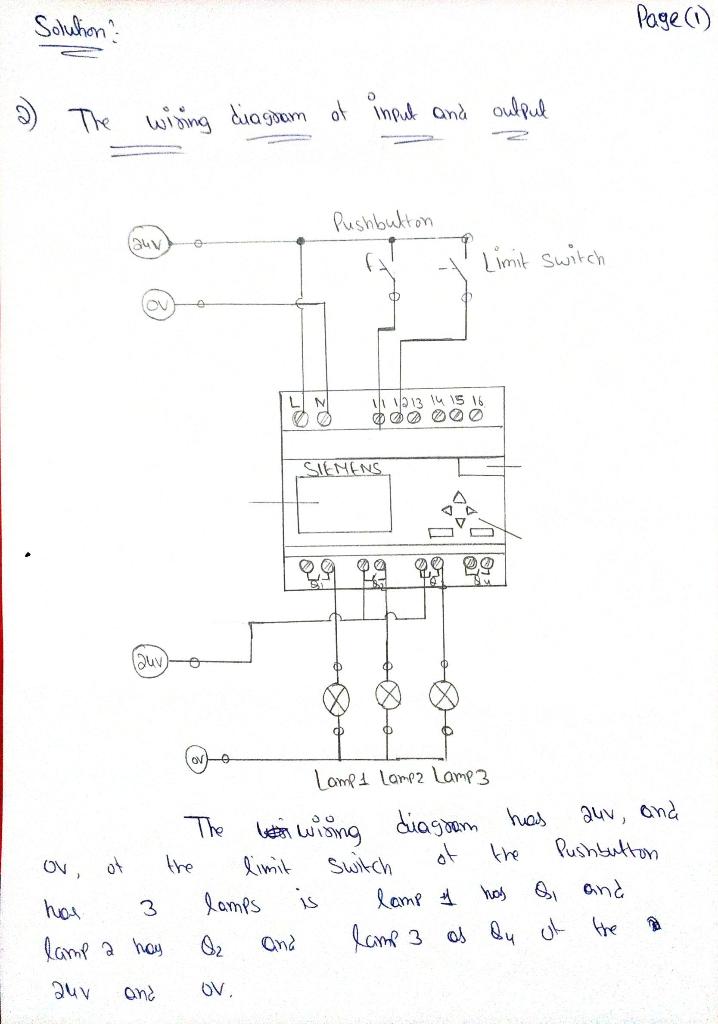 Page (1)
Solution:
2) The wiring diagram of input and output
Pushbutton
24V
Limit Switch
0V
L N I1 I2 I3 I4 I5 I6
SIEMENS
Q1 Q2 Q3 Q4
24V
0V
Lamp1 Lamp2 Lamp3
The wiring diagram has 24V, and
0V, of the limit Switch of the Pushbutton
has 3 lamps is lamp 1 has Q1 and
lamp 2 has Q2 and lamp 3 as Q4 of the
24V and 0V.